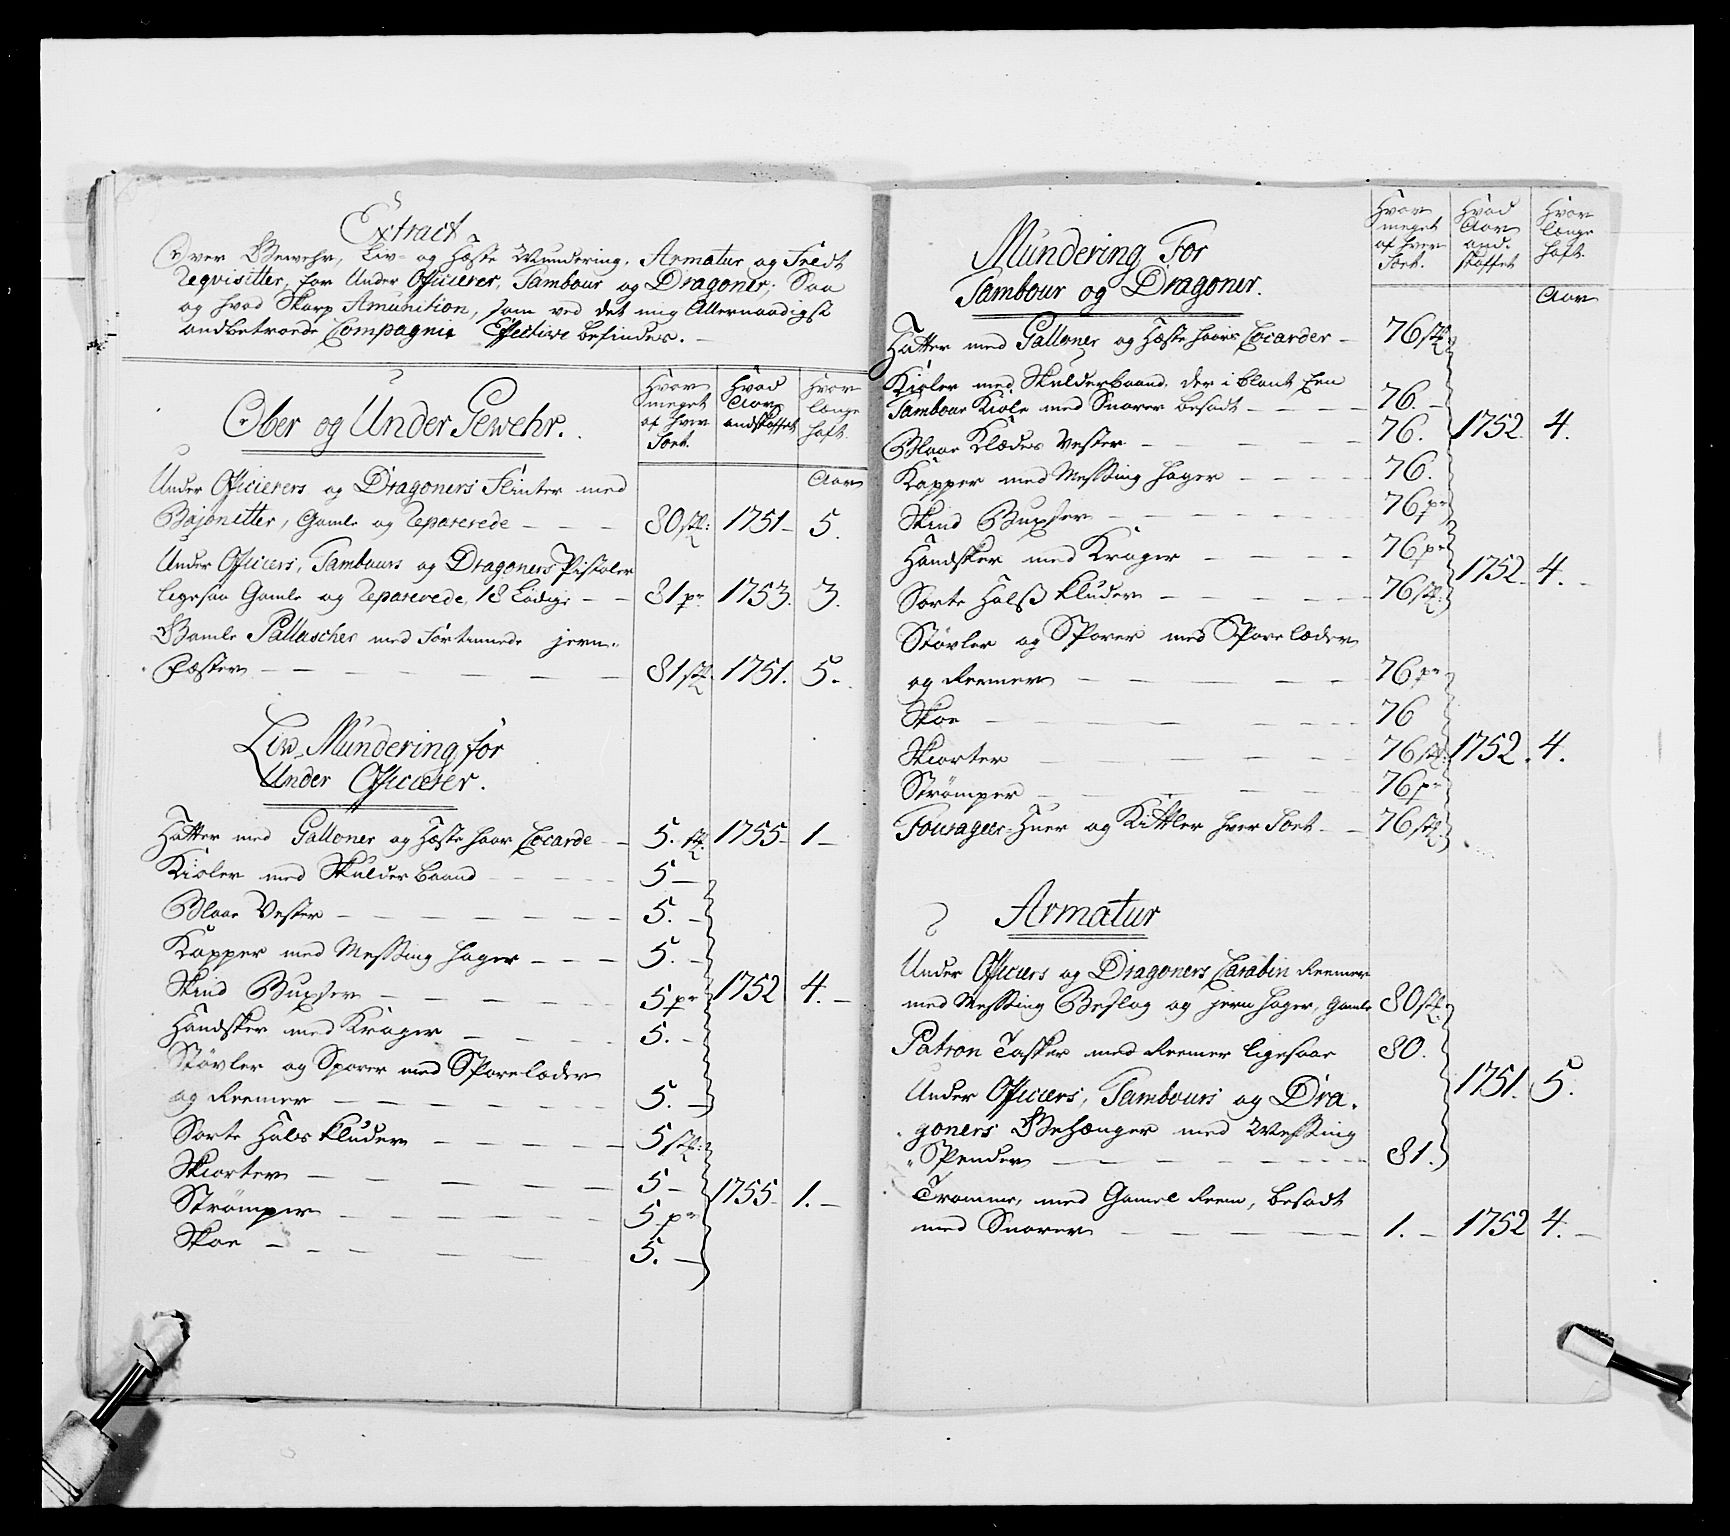 Extract
Over Gewehr, Liv- og Hæste Mundering, Armatur og Feldt
Reqvisitter, for Under Officerer, Tambour og Dragoner; Saa
og hvad Skarp Amunition, som ved det mig Allernaadigst
andbetroede Compagnie Effective befindes.
Hvor meget af hver Sort.
Hvad Aar andskaffet
Hvor længe haft.
Aar
Ober og Under Gewehr.
Under Officierers og Dragoners Flinter med
Bajonetter, Gamle og Reparerede — 80 stk: 1751 — 5.
Under Officiers, Tambours og Dragoners Pistoler
ligesaa Gamle og Reparerede, 18 Lödige — 81 pr 1753. 3.
Gamle Pallascher med Fortinnede jern-
Fæster — 81 stk. 1751. 5.
Liv-Mundering for
Under Officerer.
Hatter med Galloner og Hæstehaar Cocarde — 5. stk 1755 — 1 —
Kioler med Skulderbaand — 5 —
Blaae Vester — 5. —
Kapper med Messing Hager — 5. —
Skind Buxser — 5 pr 1752 4. —
Handsker med Krager — 5. —
Støvler og Sporer med Sporelæder
og Reemer — 5. —
Sorte Halskluder — 5 stk:
Skiorter — 5 — 1755 — 1. —
Strømper — 5 pr
Skoe — 5. —
Hvor meget af hver Sort.
Hvad Aar andskaffet
Hvor længe haft.
Aar
Mundering For
Tambour og Dragoner.
Hatter med Galloner og Hæstehaars Cocarder — 76 stk
Kioler med Skulderbaand, der i blant Een
Tambour Kiole med Snorer besadt — 76. —
Blaae Klædes Vester — 76. 1752. 4.
Kapper med Messing Hager — 76.
Skind Buxser — 76 pr
Handsker med Krager — 76 pr
Sorte Halskluder — 76 stk. 1752. 4. —
Støvler og Sporer med Sporelæder
og Reemer — 76 pr
Skoe — 76
Skiorter — 76 stk. 1752. 4.
Strømper — 76 pr
Fourageer-Huer og Kittler hver Sort — 76 stk.
Armatur
Under Officiers og Dragoners Carabin Reemer
med Messing Beslag og jern Hager, Gamle 80 stk.
Patron Tasker med Reemer ligesaae 80.
Under Officiers, Tambours og Dra-
goners Gehænger med Messing
Spender — 81. 1751. 5.
Tromme, med Gamel Reem, besadt
med Snorer — 1. — 1752 4. —